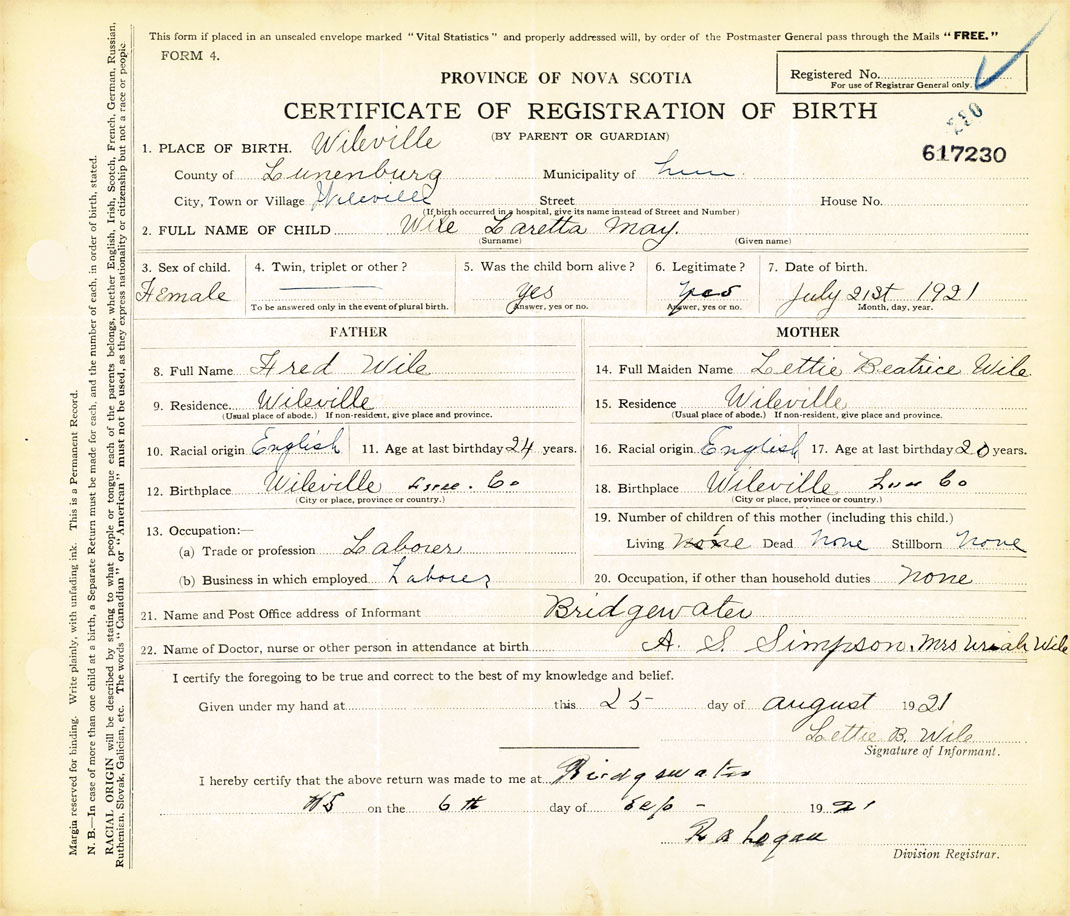 This form if placed in an unsealed envelope marked "Vital Statistics" and properly addressed will, by order of the Postmaster General pass through the Mails "FREE."
FORM 4.
Registered No.
For use of Registrar General only.
PROVINCE OF NOVA SCOTIA
CERTIFICATE OF REGISTRATION OF BIRTH
(BY PARENT OR GUARDIAN)
230
617230
1. PLACE OF BIRTH. Wileville
County of Lunenburg Municipality of Lun.
City, Town or Village Wileville Street House No.
(If birth occurred in a hospital, give its name instead of Street and Number)
2. FULL NAME OF CHILD Wile Laretta May.
(Surname) (Given name)
3. Sex of child. 4. Twin, triplet or other? 5. Was the child born alive? 6. Legitimate? 7. Date of birth.
Female yes yes July 21st 1921
To be answered only in the event of plural birth. Answer, yes or no. Answer, yes or no. Month, day, year.
FATHER
8. Full Name Fred Wile
9. Residence Wileville
(Usual place of abode.) If non-resident, give place and province.
10. Racial origin English 11. Age at last birthday 24 years.
12. Birthplace Wileville Lun. Co
(City or place, province or country.)
13. Occupation:—
(a) Trade or profession Laborer
(b) Business in which employed Laborer
MOTHER
14. Full Maiden Name Lettie Beatrice Wile
15. Residence Wileville
(Usual place of abode.) If non-resident, give place and province.
16. Racial origin English 17. Age at last birthday 20 years.
18. Birthplace Wileville Lun Co
(City or place, province or country.)
19. Number of children of this mother (including this child.)
Living Dead None Stillborn None
20. Occupation, if other than household duties None
21. Name and Post Office address of Informant Bridgewater
22. Name of Doctor, nurse or other person in attendance at birth A. S. Simpson, Mrs Uriah Wile
I certify the foregoing to be true and correct to the best of my knowledge and belief.
Given under my hand at this 25 day of August 1921
Lettie B. Wile
Signature of Informant.
I hereby certify that the above return was made to me at Bridgewater
NS on the 6th day of Sep - 1921
Logan
Division Registrar.
Margin reserved for binding. Write plainly, with unfading ink. This is a Permanent Record.
N. B.—In case of more than one child at a birth, a Separate Return must be made for each, and the number of each, in order of birth, stated.
RACIAL ORIGIN will be described by stating to what people or tongue each of the parents belongs, whether English, Irish, Scotch, French, German, Russian,
Ruthenian, Slovak, Galician, etc. The words "Canadian" or "American" must not be used, as they express nationality or citizenship but not a race or people